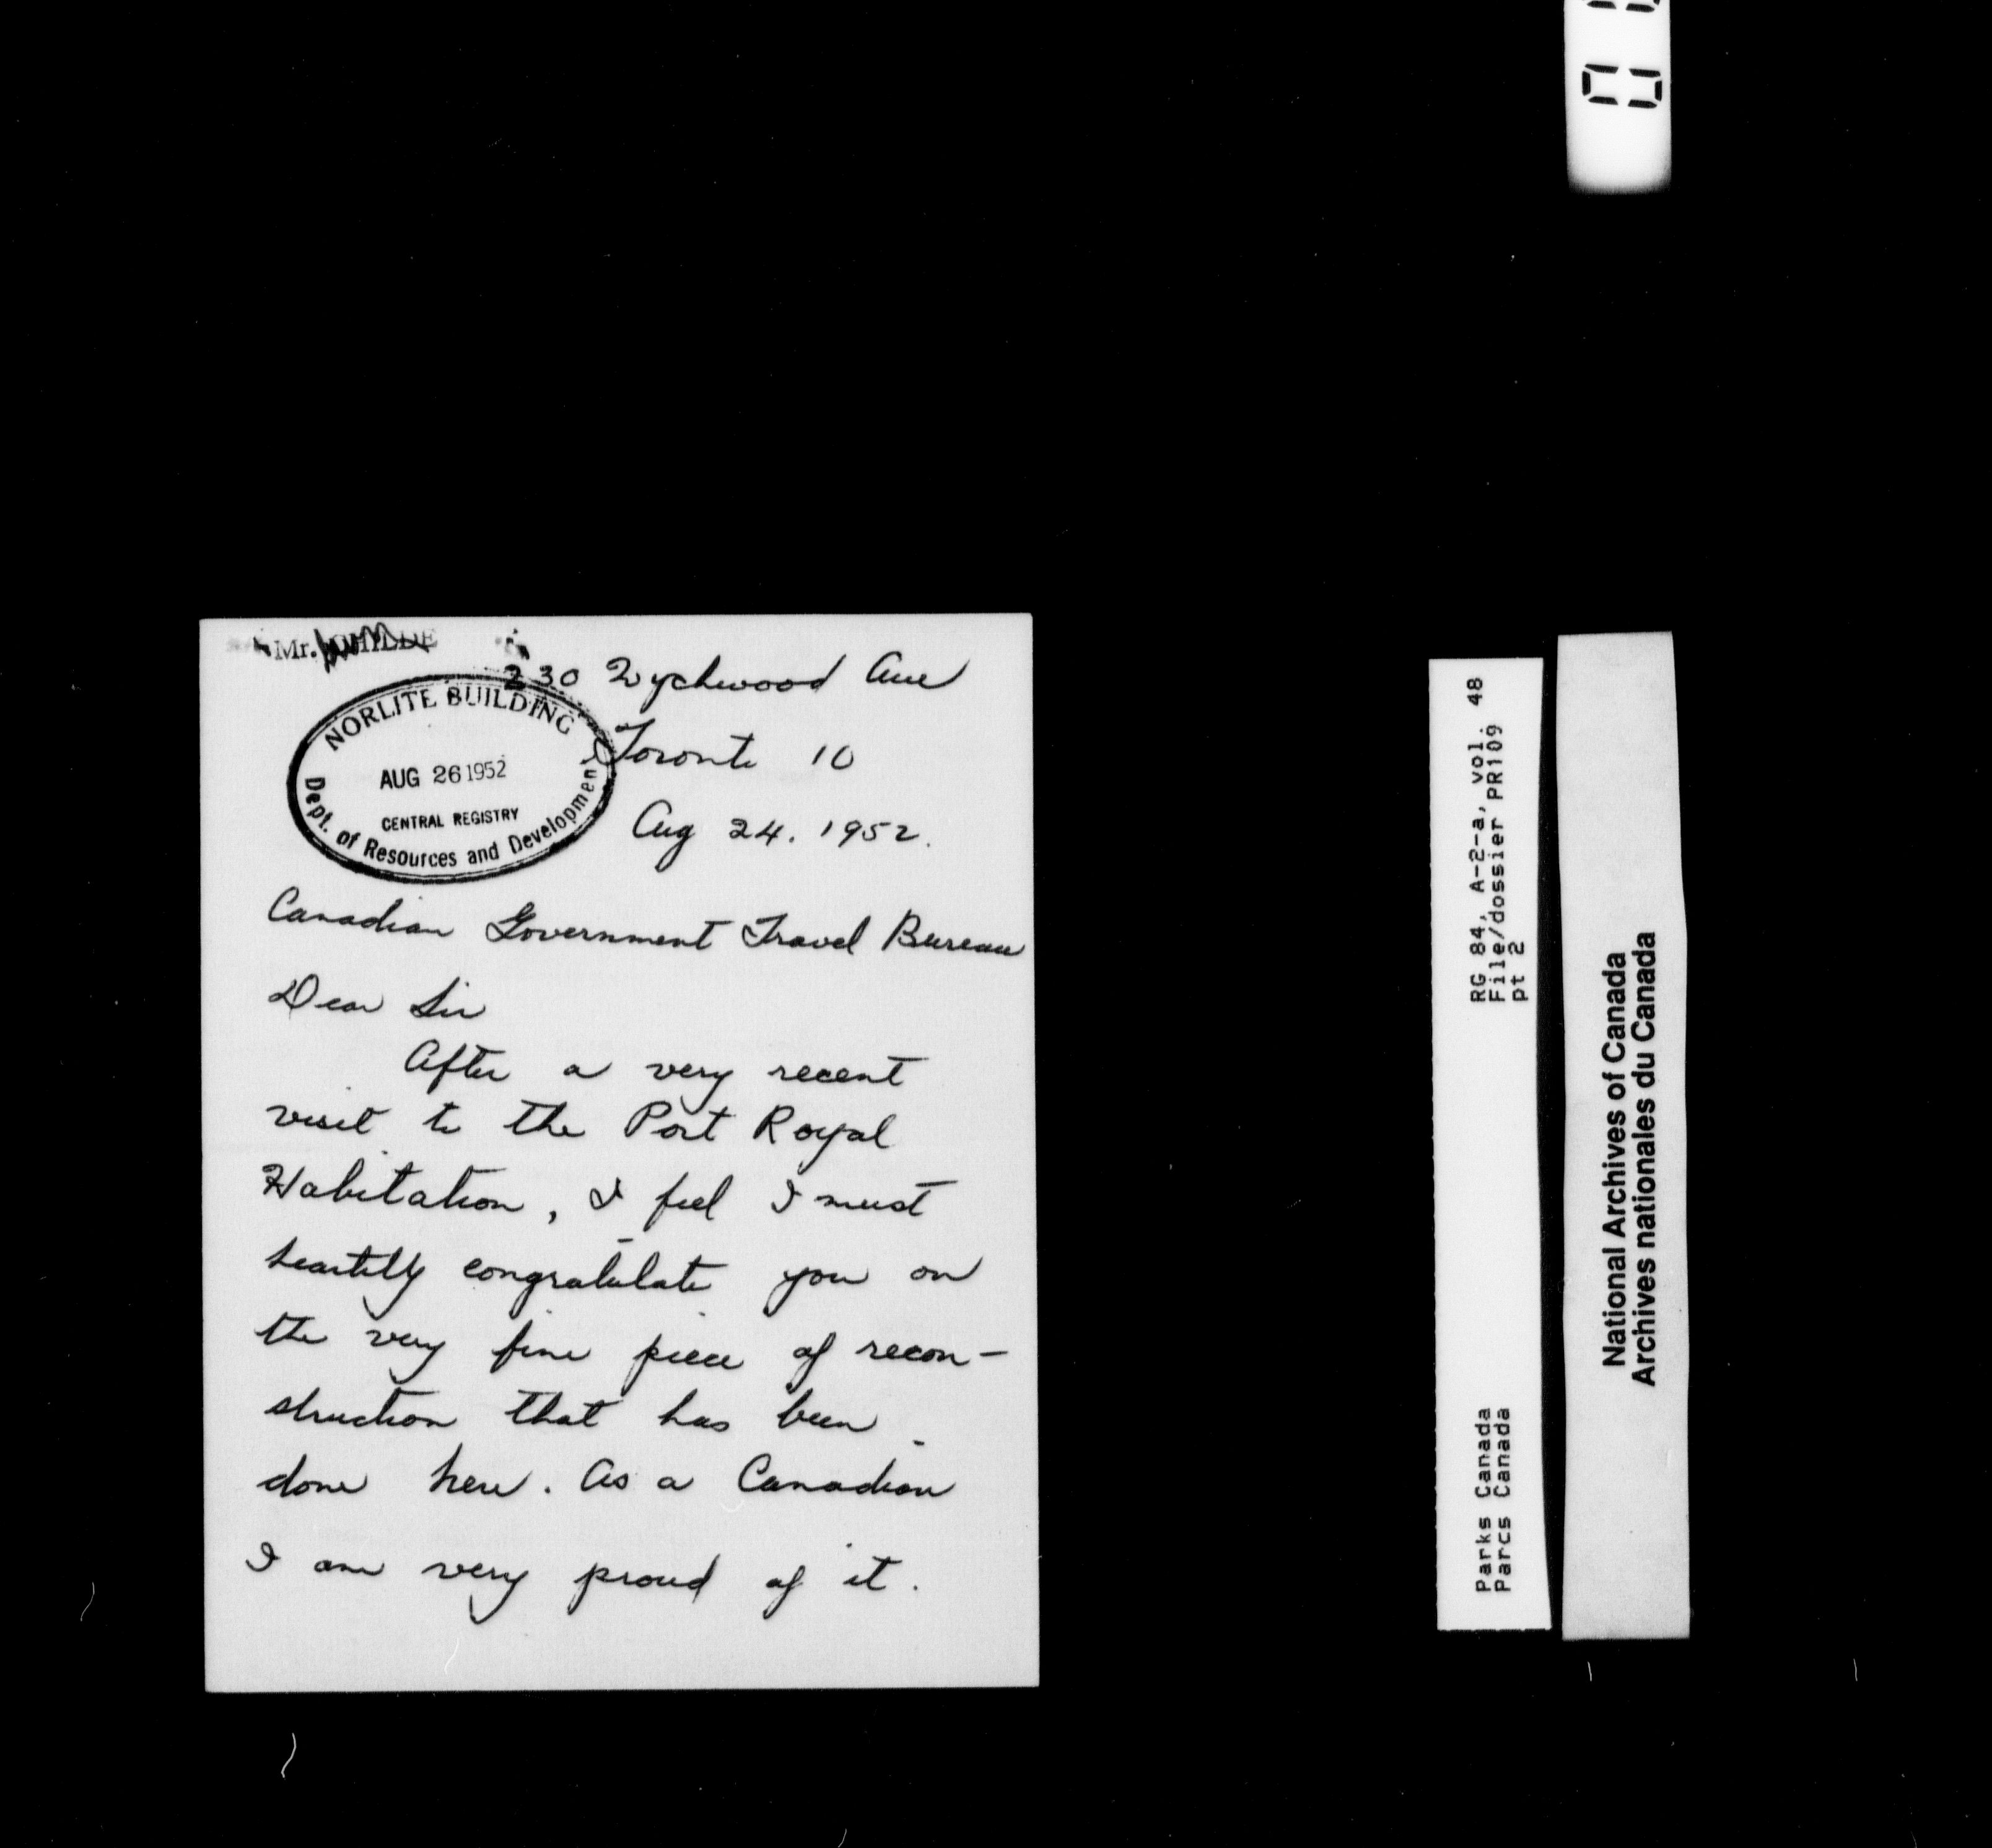 Mr.
230 Wychwood Ave
NORLITE BUILDING
AUG 26 1952
CENTRAL REGISTRY
Dept. of Resources and Development
Toronto 10
Aug 24. 1952.
Canadian Government Travel Bureau
Dear Sir
After a very recent
visit to the Port Royal
Habitation, I feel I must
heartily congratulate you on
the very fine piece of recon-
struction that has been
done here. As a Canadian
I am very proud of it.
RG 84, A-2-a, vol. 48
File/dossier PR109
pt 2
Parks Canada
Parcs Canada
National Archives of Canada
Archives nationales du Canada